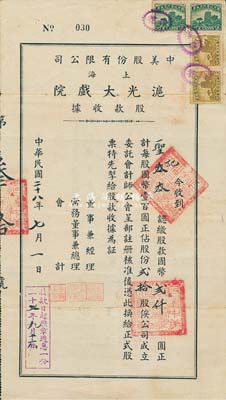 No 030
中美股份有限公司
上海
滬光大戲院
股款收據
今收到
認繳股款國幣貳仟圓正
計每股國幣壹百圓正佔股份貳拾股俟公司成立
委託會計師公會呈部註冊核准後憑此換給正式股
票特先掣給股款收據為証
董事兼經理
常務董事兼總理
會計
中華民國二十八年七月一日